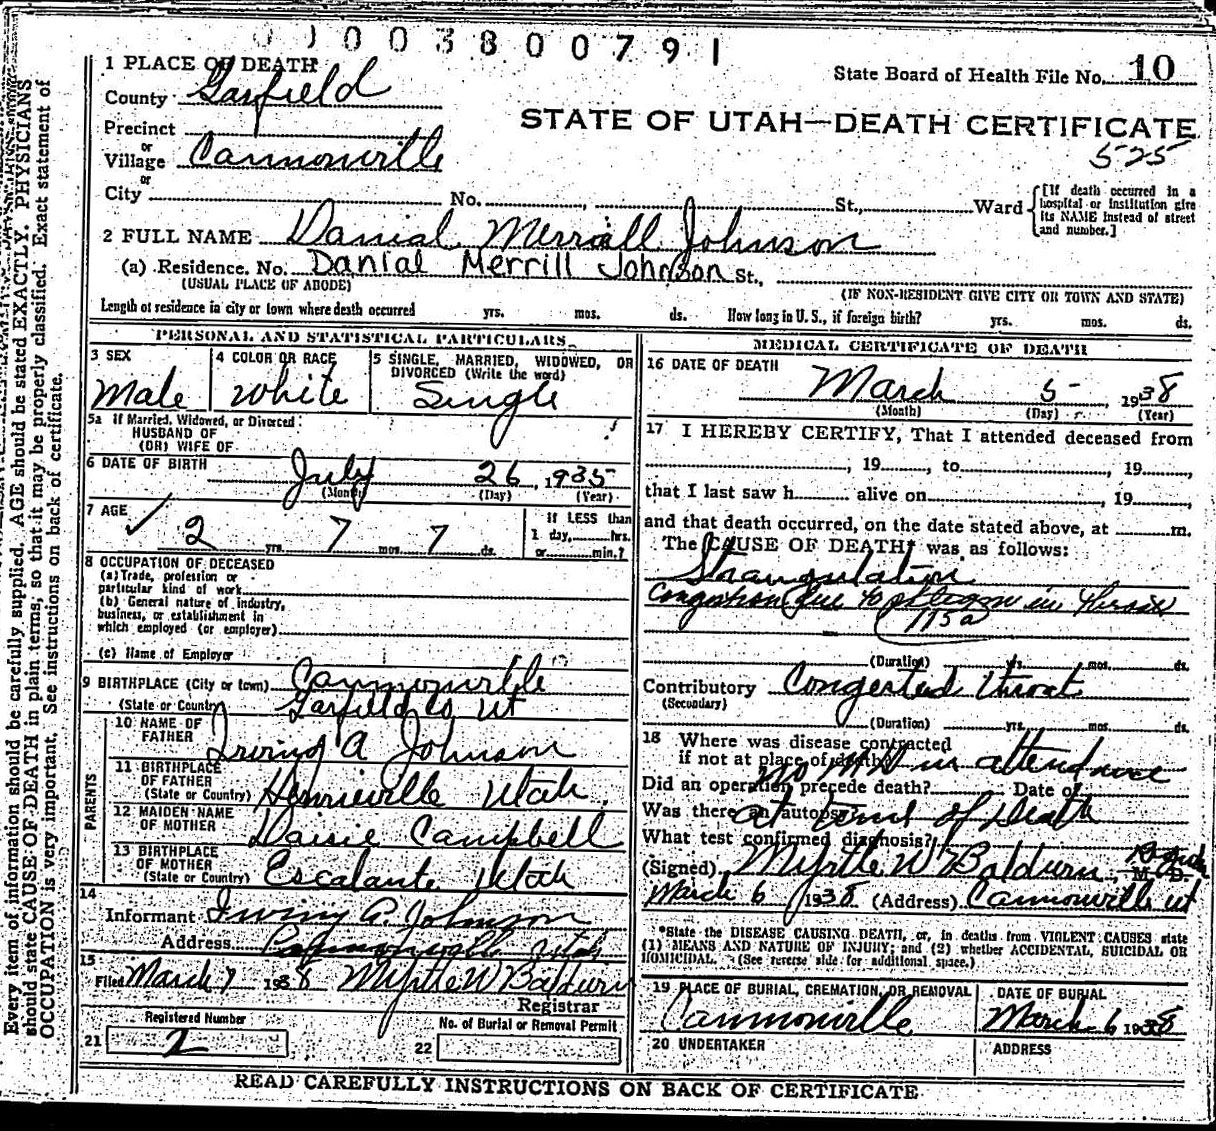 0 0 0 3 8 0 0 7 9 1
State Board of Health File No. 10
STATE OF UTAH—DEATH CERTIFICATE
525
1 PLACE OF DEATH
County Garfield
Precinct
or
Village Cannonville
or
City No. , St., Ward
[If death occurred in a
hospital or institution give
its NAME instead of street
and number.]
2 FULL NAME Danial Merrill Johnson
(a) Residence. No. Danial Merrill Johnson St.,
(USUAL PLACE OF ABODE)
(IF NON-RESIDENT GIVE CITY OR TOWN AND STATE)
Length of residence in city or town where death occurred yrs. mos. ds. How long in U. S., if foreign birth? yrs. mos. ds.
PERSONAL AND STATISTICAL PARTICULARS
3 SEX
Male
4 COLOR OR RACE
White
5 SINGLE, MARRIED, WIDOWED, OR
DIVORCED (Write the word)
Single
5a If Married, Widowed, or Divorced
HUSBAND OF
(OR) WIFE OF
6 DATE OF BIRTH
July 26, 1935
(Month) (Day) (Year)
7 AGE
2 yrs. 7 mos. 7 ds.
If LESS than
1 day, hrs.
or min.?
8 OCCUPATION OF DECEASED
(a) Trade, profession or
particular kind of work
(b) General nature of industry,
business, or establishment in
which employed (or employer)
(c) Name of Employer
9 BIRTHPLACE (City or town) Cannonville
(State or Country) Garfield Co Ut
PARENTS
10 NAME OF
FATHER Irving A Johnson
11 BIRTHPLACE
OF FATHER
(State or Country) Henrieville Utah.
12 MAIDEN NAME
OF MOTHER Daisie Campbell
13 BIRTHPLACE
OF MOTHER
(State or Country) Escalante Utah
14
Informant Irving A. Johnson
Address Cannonville Utah
15
Filed March 7 1938 Myrtle W Baldwin
Registrar
Registered Number
21 2
No. of Burial or Removal Permit
22
MEDICAL CERTIFICATE OF DEATH
16 DATE OF DEATH
March 5, 1938
(Month) (Day) (Year)
17 I HEREBY CERTIFY, That I attended deceased from
, 19 , to , 19 ,
that I last saw h alive on , 19
and that death occurred, on the date stated above, at m.
The CAUSE OF DEATH* was as follows:
Strangulation
Congestion due to in throat
115a
(Duration) yrs. mos. ds.
Contributory Congested throat
(Secondary)
(Duration) yrs. mos. ds.
18 Where was disease contracted
if not at place of death?
no MD in attendance
Did an operation precede death? Date of
Was there an autopsy?
at time of Death
What test confirmed diagnosis?
(Signed) Myrtle W Baldwin, M. D.
March 6 1938 (Address) Cannonville Ut
*State the DISEASE CAUSING DEATH, or, in deaths from VIOLENT CAUSES state
(1) MEANS AND NATURE OF INJURY; and (2) whether ACCIDENTAL, SUICIDAL OR
HOMICIDAL. (See reverse side for additional space.)
19 PLACE OF BURIAL, CREMATION, OR REMOVAL
Cannonville
DATE OF BURIAL
March 6 1938
20 UNDERTAKER
ADDRESS
READ CAREFULLY INSTRUCTIONS ON BACK OF CERTIFICATE
Every item of information should be carefully supplied. AGE should be stated EXACTLY. PHYSICIANS
should state CAUSE OF DEATH in plain terms, so that it may be properly classified. Exact statement of
OCCUPATION is very important. See instructions on back of certificate.